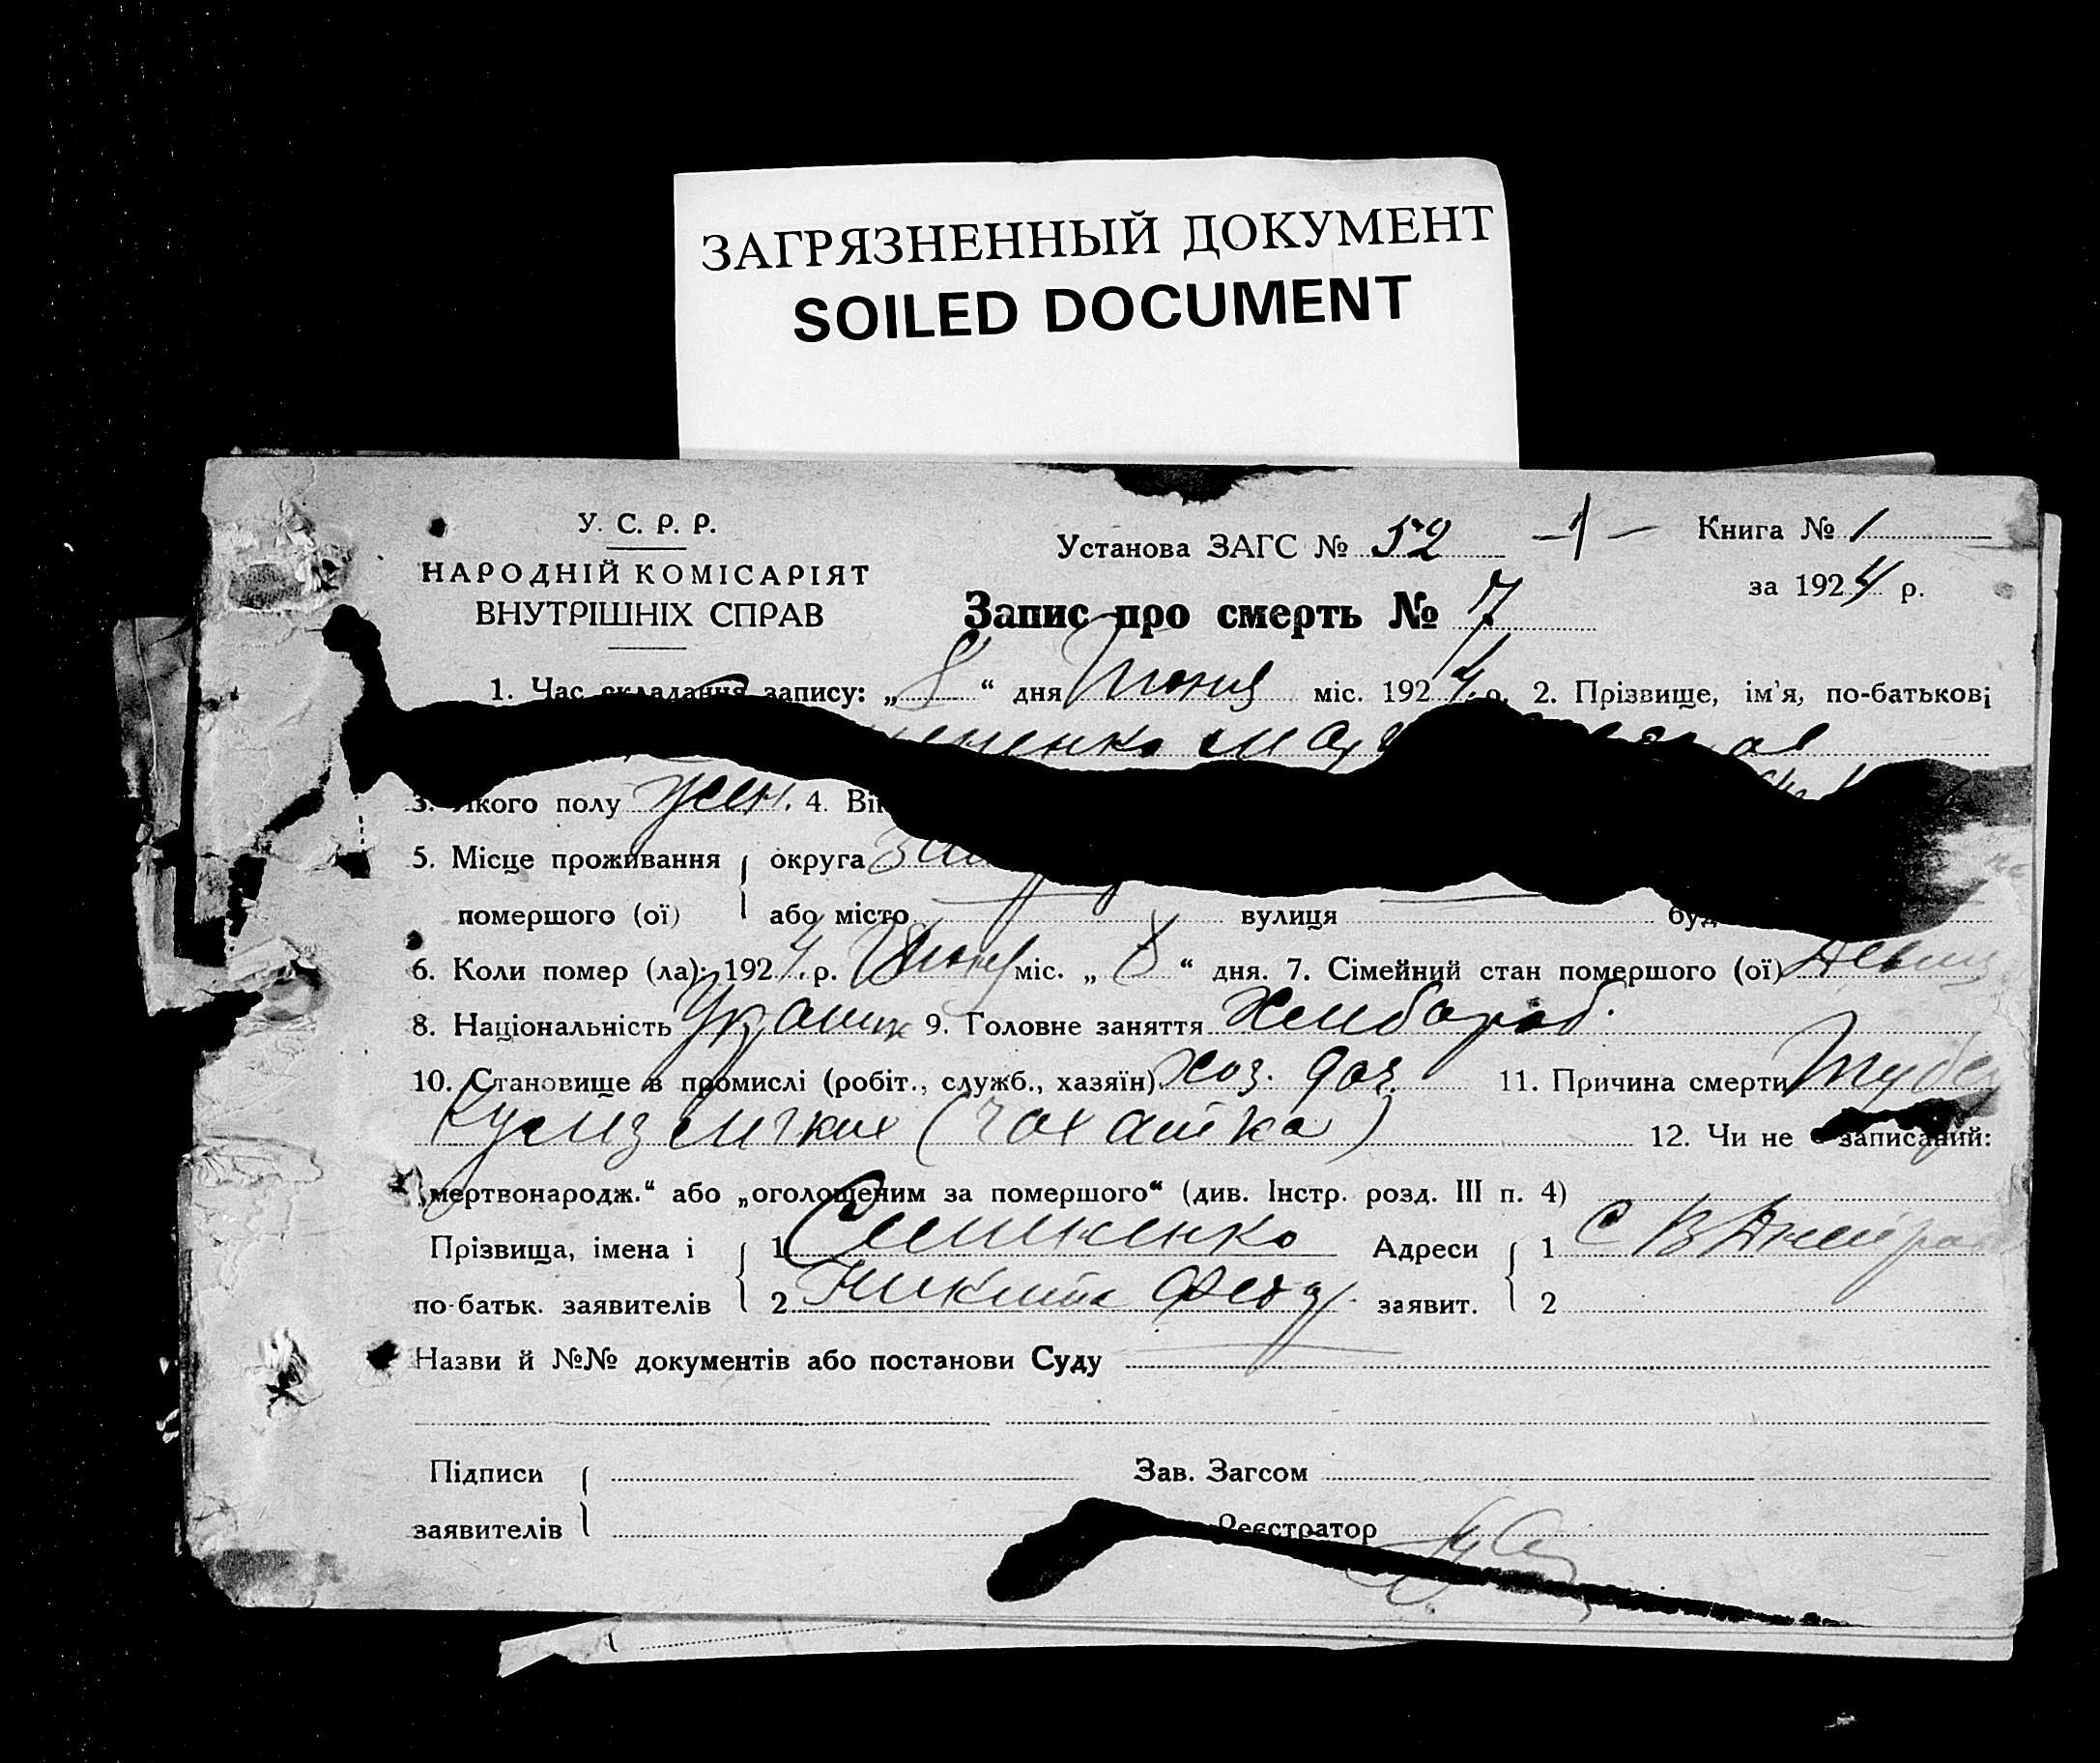 ЗАГРЯЗНЕННЫЙ ДОКУМЕНТ
SOILED DOCUMENT
У. С. Р. Р.
НАРОДНІЙ КОМІСАРІЯТ
ВНУТРІШНІХ СПРАВ
Установа ЗАГС № 52 — 1 — Книга № 1
за 1924 р.
Запис про смерть № 7
1. Час складання запису: „ 8 “ дня Июня міс. 1924 р. 2. Прізвище, ім'я, по-батькові
3. Якого полу жен. 4. Ві
5. Місце проживання округа
помершого (ої) або місто вулиця буд
6. Коли помер (ла): 1924 р. Июня міс. „ 8 “ дня. 7. Сімейний стан помершого (ої) Девиц
8. Національність Украинк 9. Головне заняття Хлебороб.
10. Становище в промислі (робіт., служб., хазяїн) хоз. доч. 11. Причина смерти Тубер
кулиз легких (чахотка) 12. Чи не є записаний:
„мертвонародж.“ або „оголошеним за помершого“ (див. Інстр. розд. III п. 4)
Прізвища, імена і 1 Семененко Адреси 1 С
по-батьк. заявителів 2 Никита Фед заявит. 2
Назви й №№ документів або постанови Суду
Підписи Зав. Загсом
заявителів Реєстратор